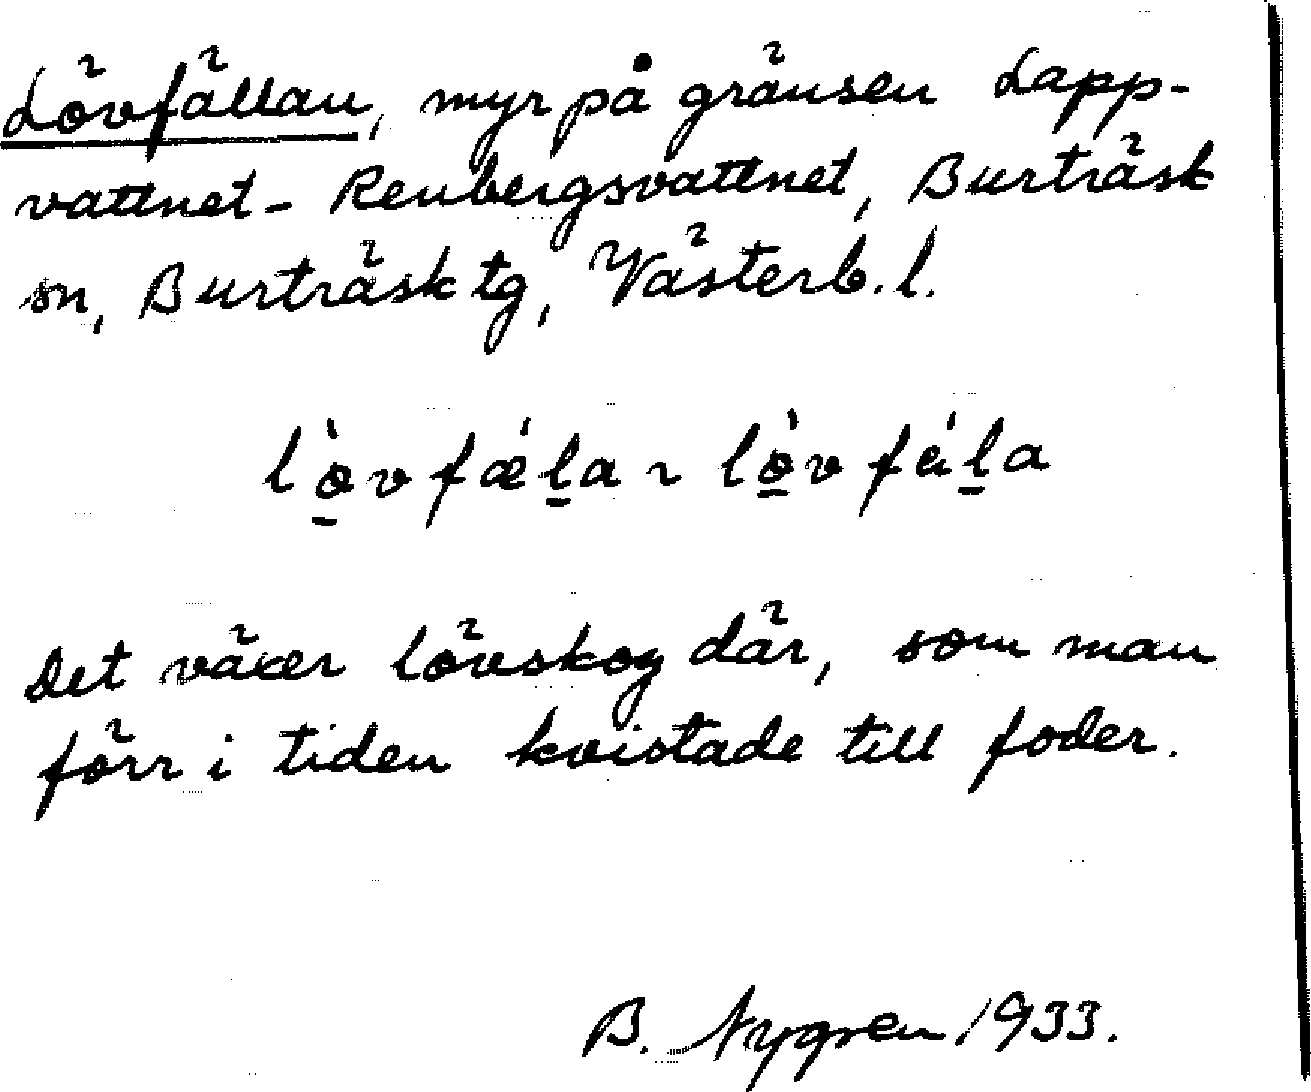 Lövfällan, myr på gränsen Lapp-
vattnet - Renbergsvattnet, Burträsk
sn, Burträsk tg, Västerb. l.
lò̱vfǽḻa ~ lò̱vfáḻa
Det växer lövskog där, som man
förr i tiden kvistade till foder.
B. Nygren 1933.